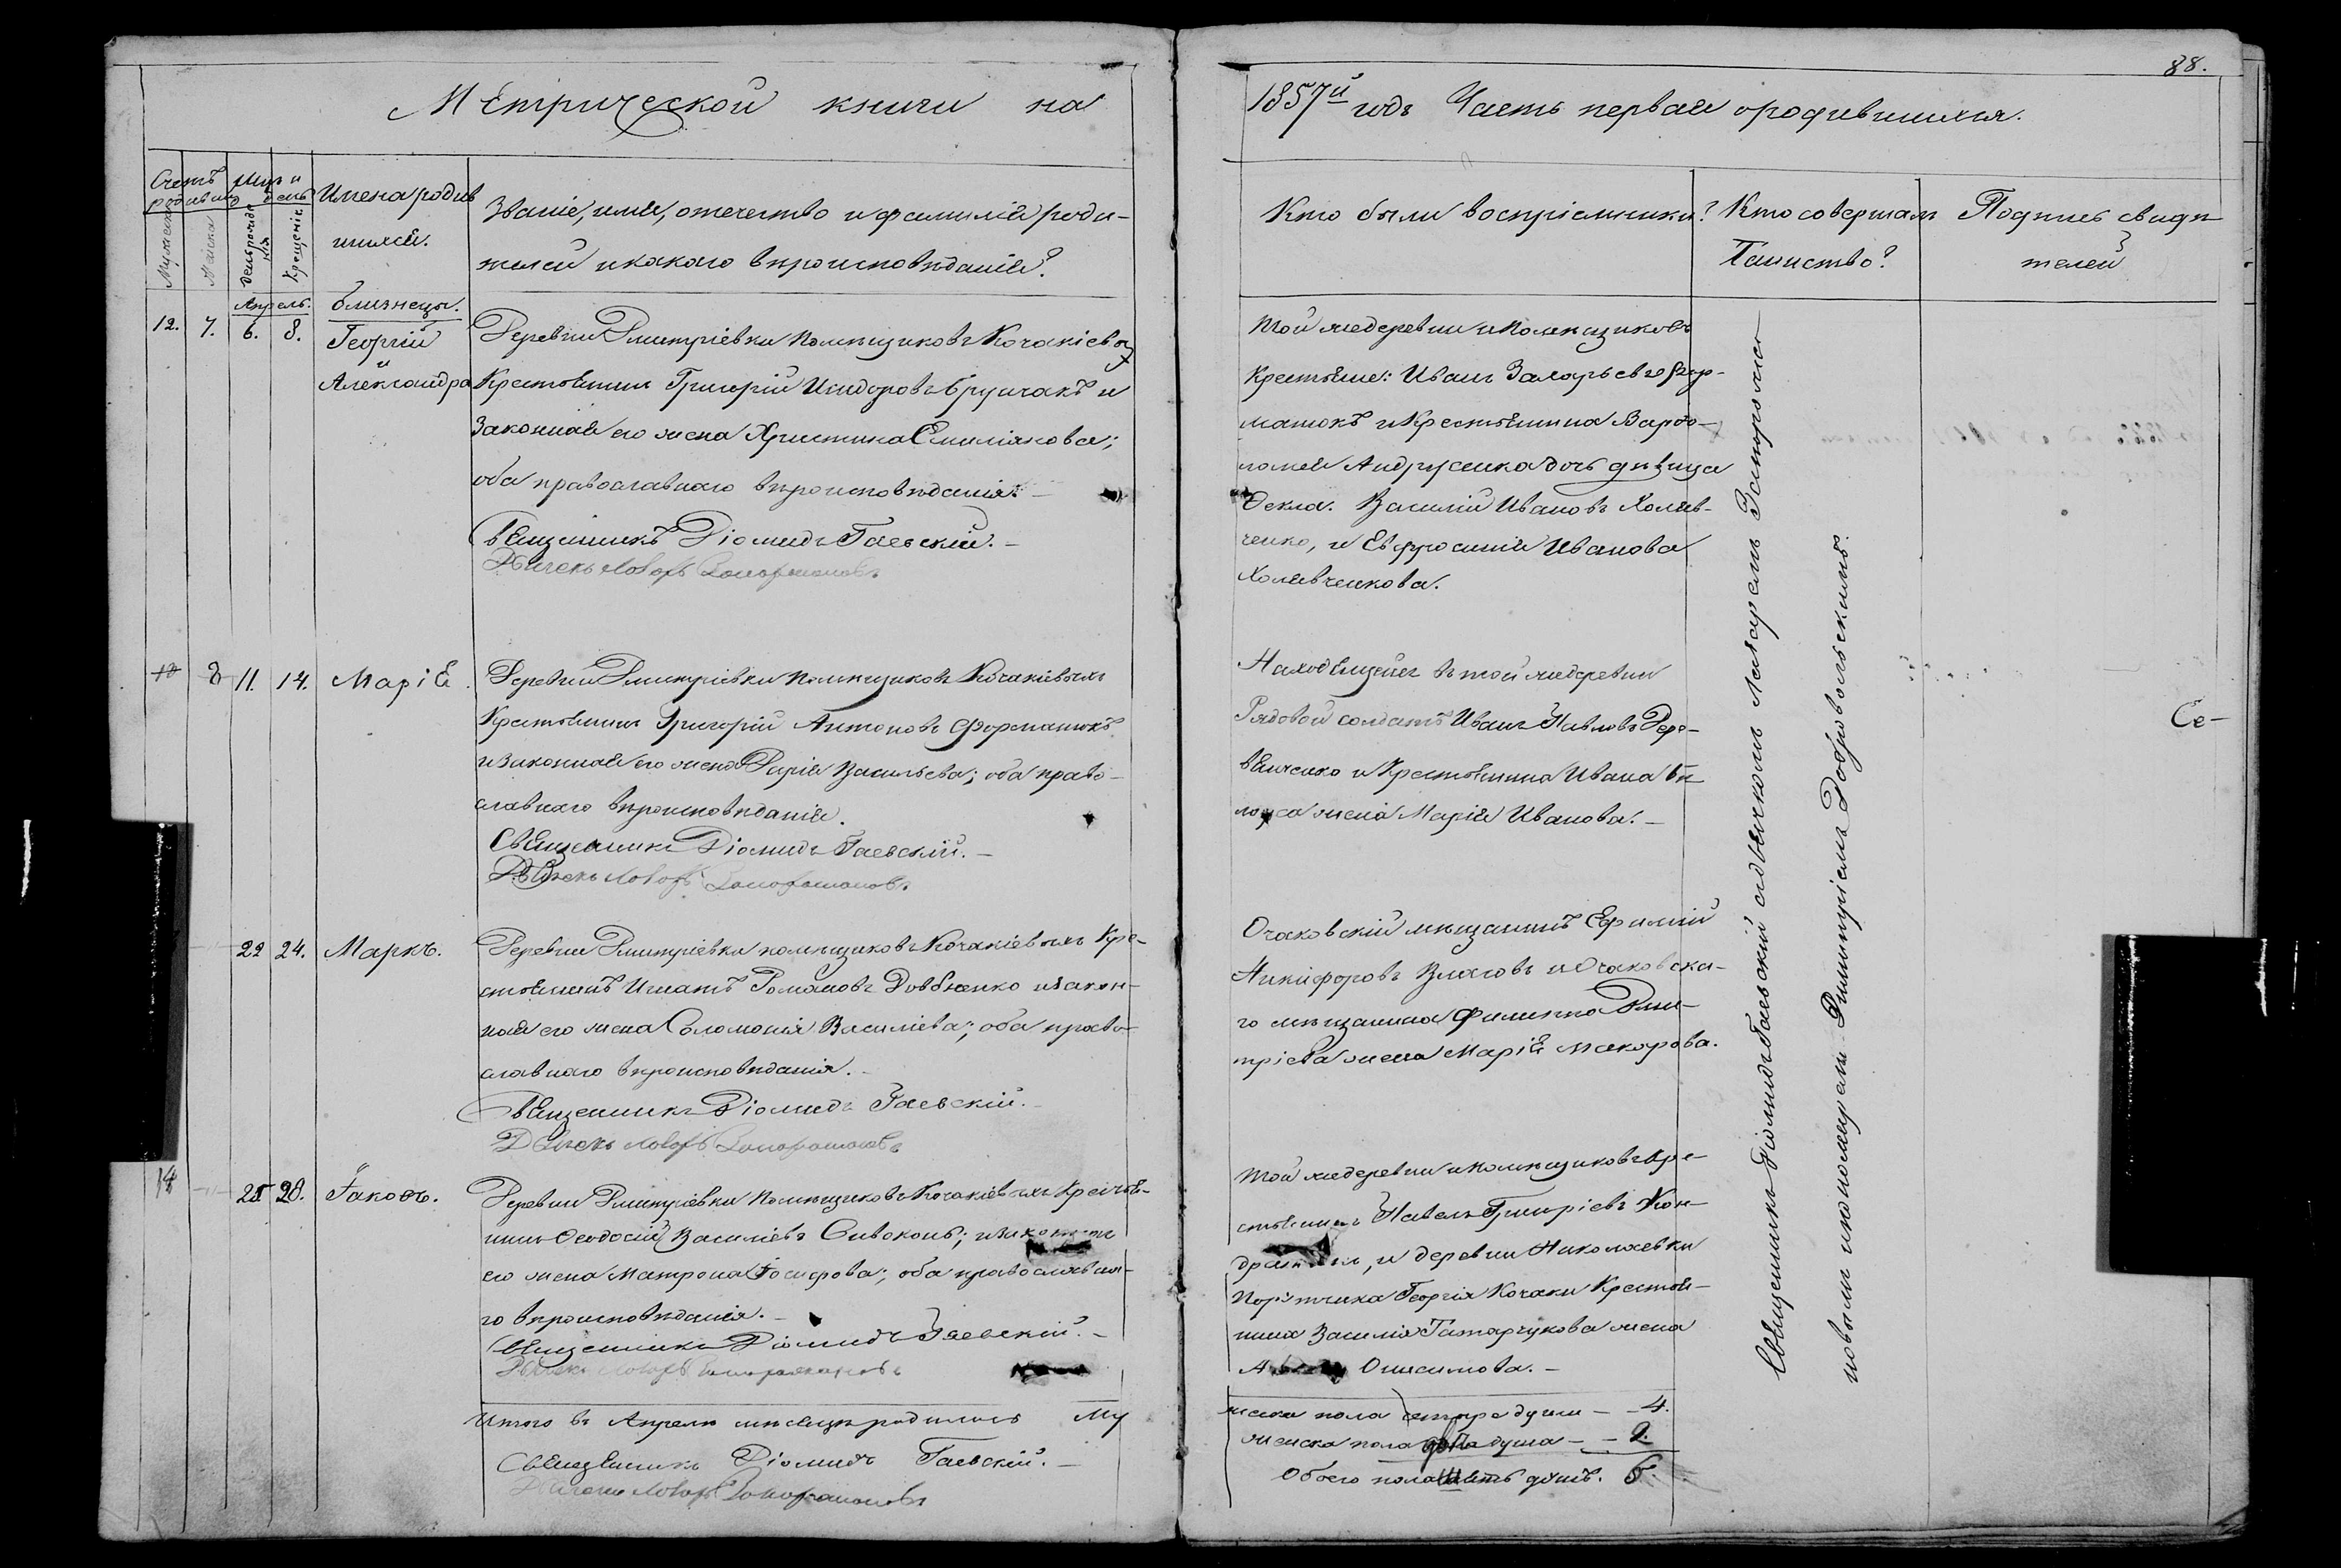 Метрической книги на
1857й годъ Часть первая о родившихся.
88.
Счетъ родивш.
Мужеска
Женска
Мцъ и день
День рожденія
Крещенія
Имена родившихся.
Званіе, имя, отечество и фамилія роди-
телей и какаго вѣроисповѣданія?
Кто были воспріемники?
Кто совершалъ
Таинство?
Подпись свидѣ
телей
Апрель.
12. 7. 6. 8.
близнецы.
Георгій
и
Александра
Деревни Дмитріевки помѣщиковъ Кочакіевыхъ
Крестьянинъ Григорій Исидоровъ и
Законная его жена Христина Емиліянова;
оба православнаго вѣроисповѣданія.
Священникъ Діомидъ Гаевскій.
Дьячекъ
Той же деревни и помѣщиковъ
крестьяне: Иванъ Захарьевъ Фур-
манюкъ и Крестьянина Варѳо-
ломея Андрусенка дочь дѣвица
Ѳекла. Василій Ивановъ Холяв-
ченко, и Евфросинія Иванова
Холявченкова.
8 11. 14. Марія
Деревни Дмитріевки помѣщиковъ Кочакіевыхъ
Крестьянинъ Григорій Антоновъ Фурманюкъ
и законная его жена Дарія Васильева; оба право-
славнаго вѣроисповѣданія.
Священникъ Діомидъ Гаевскій.
Дьячекъ
Находящейся въ той же деревни
Рядовой солдатъ Иванъ Павловъ Дере-
вянченко и Крестьянина Ивана Бѣ
лоуса жена Марія Иванова.
Се-
22 24. Маркъ.
Деревни Дмитріевки помѣщиковъ Кочакіевыхъ Кре-
стьянинъ Игнатъ Романовъ Довбненко и закон-
ная его жена Соломонія Василіева; оба право-
славнаго вѣроисповѣданія.
Священникъ Діомидъ Гаевскій.
Дьячекъ
Очаковскій мѣщанинъ Ефимій
Никифоровъ Власовъ и Очаковска-
го мѣщанина Филиппа Дми-
тріева жена Марія Макарова.
14 25 28. Іаковъ.
Деревни Дмитріевки помѣщиковъ Кочакіевыхъ Крестья-
нинъ Ѳеодосій Василіевъ Сивоконь; и законная
его жена Матрона Іосифова; оба православна-
го вѣроисповѣданія.
Священникъ Діомидъ Гаевскій.
Дьячекъ
Той же деревни и помѣщиковъ Кре-
стьянинъ Павелъ Григоріевъ Кон-
и деревни Николаевки
Порутчика Георгія Кочаки Крестья-
нина Василія Татарчукова жена
Онисимова.
Итого въ Апрелѣ мѣсяцѣ родилось Му
жеска пола четыре души — 4.
женска пола двѣ душа — 2.
Обоего пола шесть душъ. 6.
Священникъ Діомидъ Гаевскій.
Дьячекъ
Священникъ Діомидъ Гаевскій съ дьячкомъ Лаваремъ
новымъ и пономаремъ Димитріемъ Добровольскимъ.